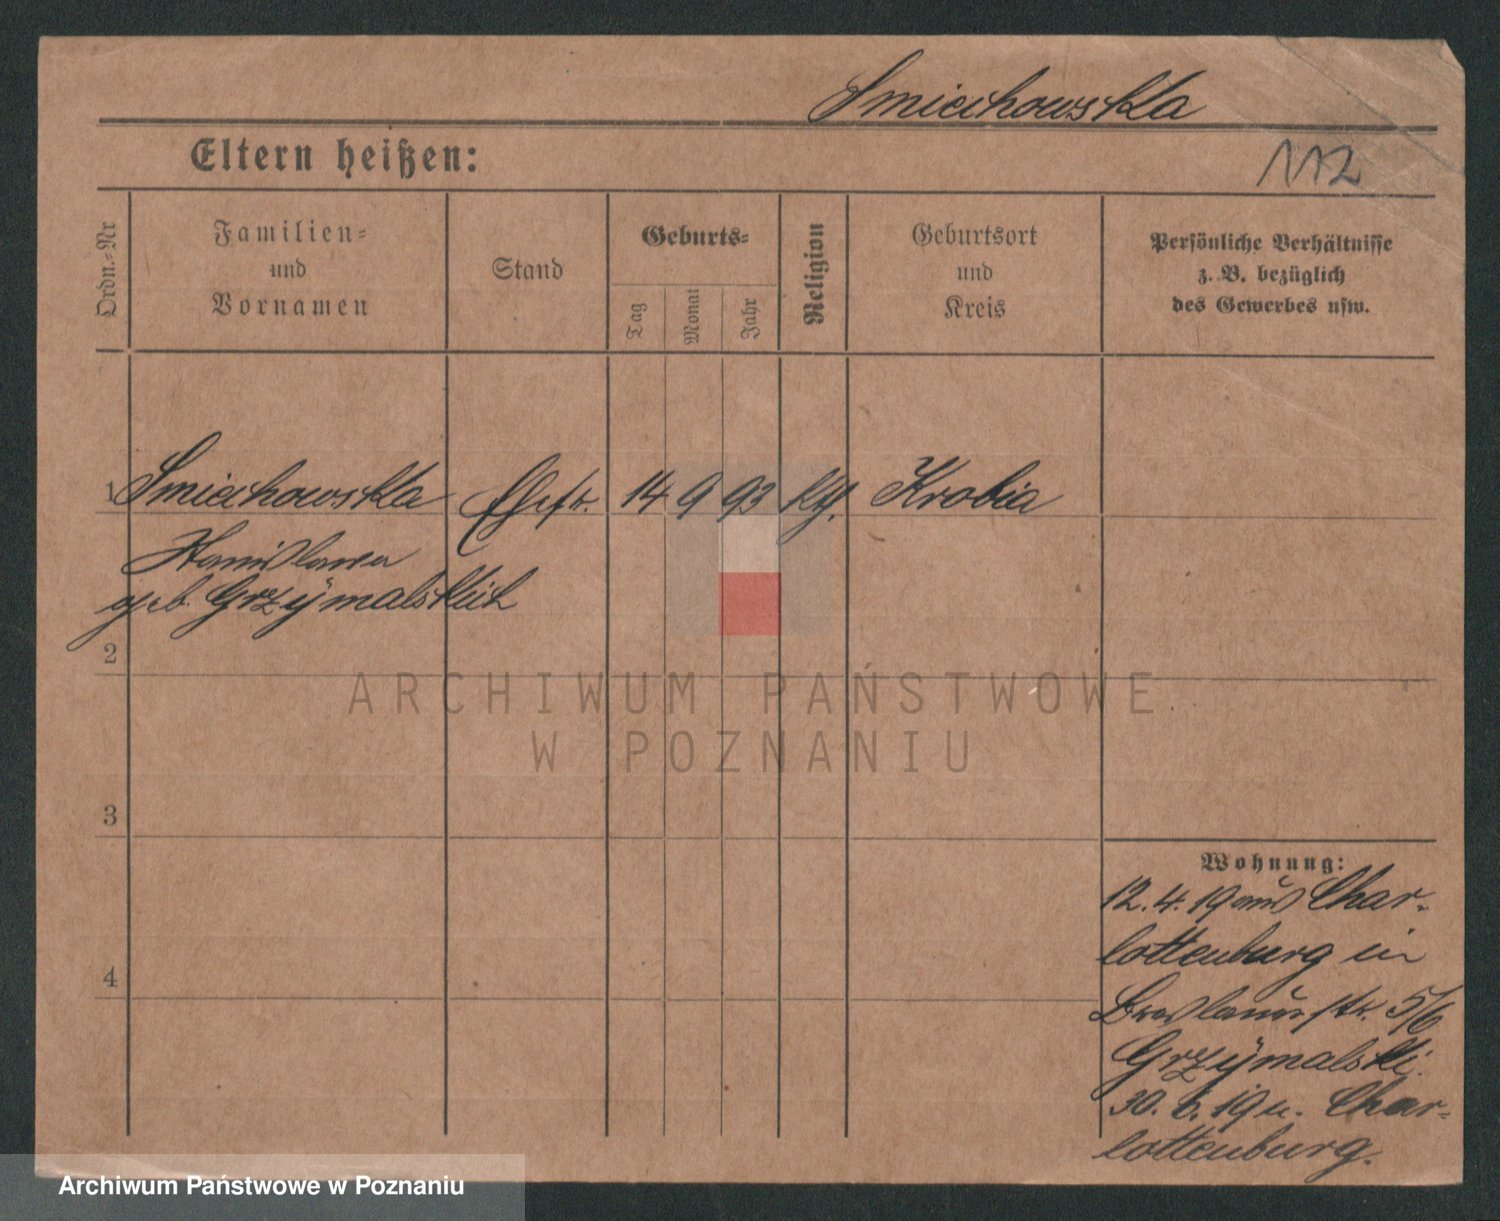 Smiechowska
Eltern heißen:
112
Ordn.-Nr
Familien-
und
Vornamen
Stand
Geburts-
Tag
Monat
Jahr
Religion
Geburtsort
und
Kreis
Persönliche Verhältnisse
z. B. bezüglich
des Gewerbes usw.
1 Smiechowska Ehefr. 14 9 93 kth. Krobia
Stanislawa
geb. Grzymalski
2
3
4
Wohnung:
12. 4. 19 aus Char-
lottenburg in
Breslauerstr. 5/6
Grzymalski.
30. 6. 19 n. Char-
lottenburg.
ARCHIWUM PAŃSTWOWE
W POZNANIU
Archiwum Państwowe w Poznaniu